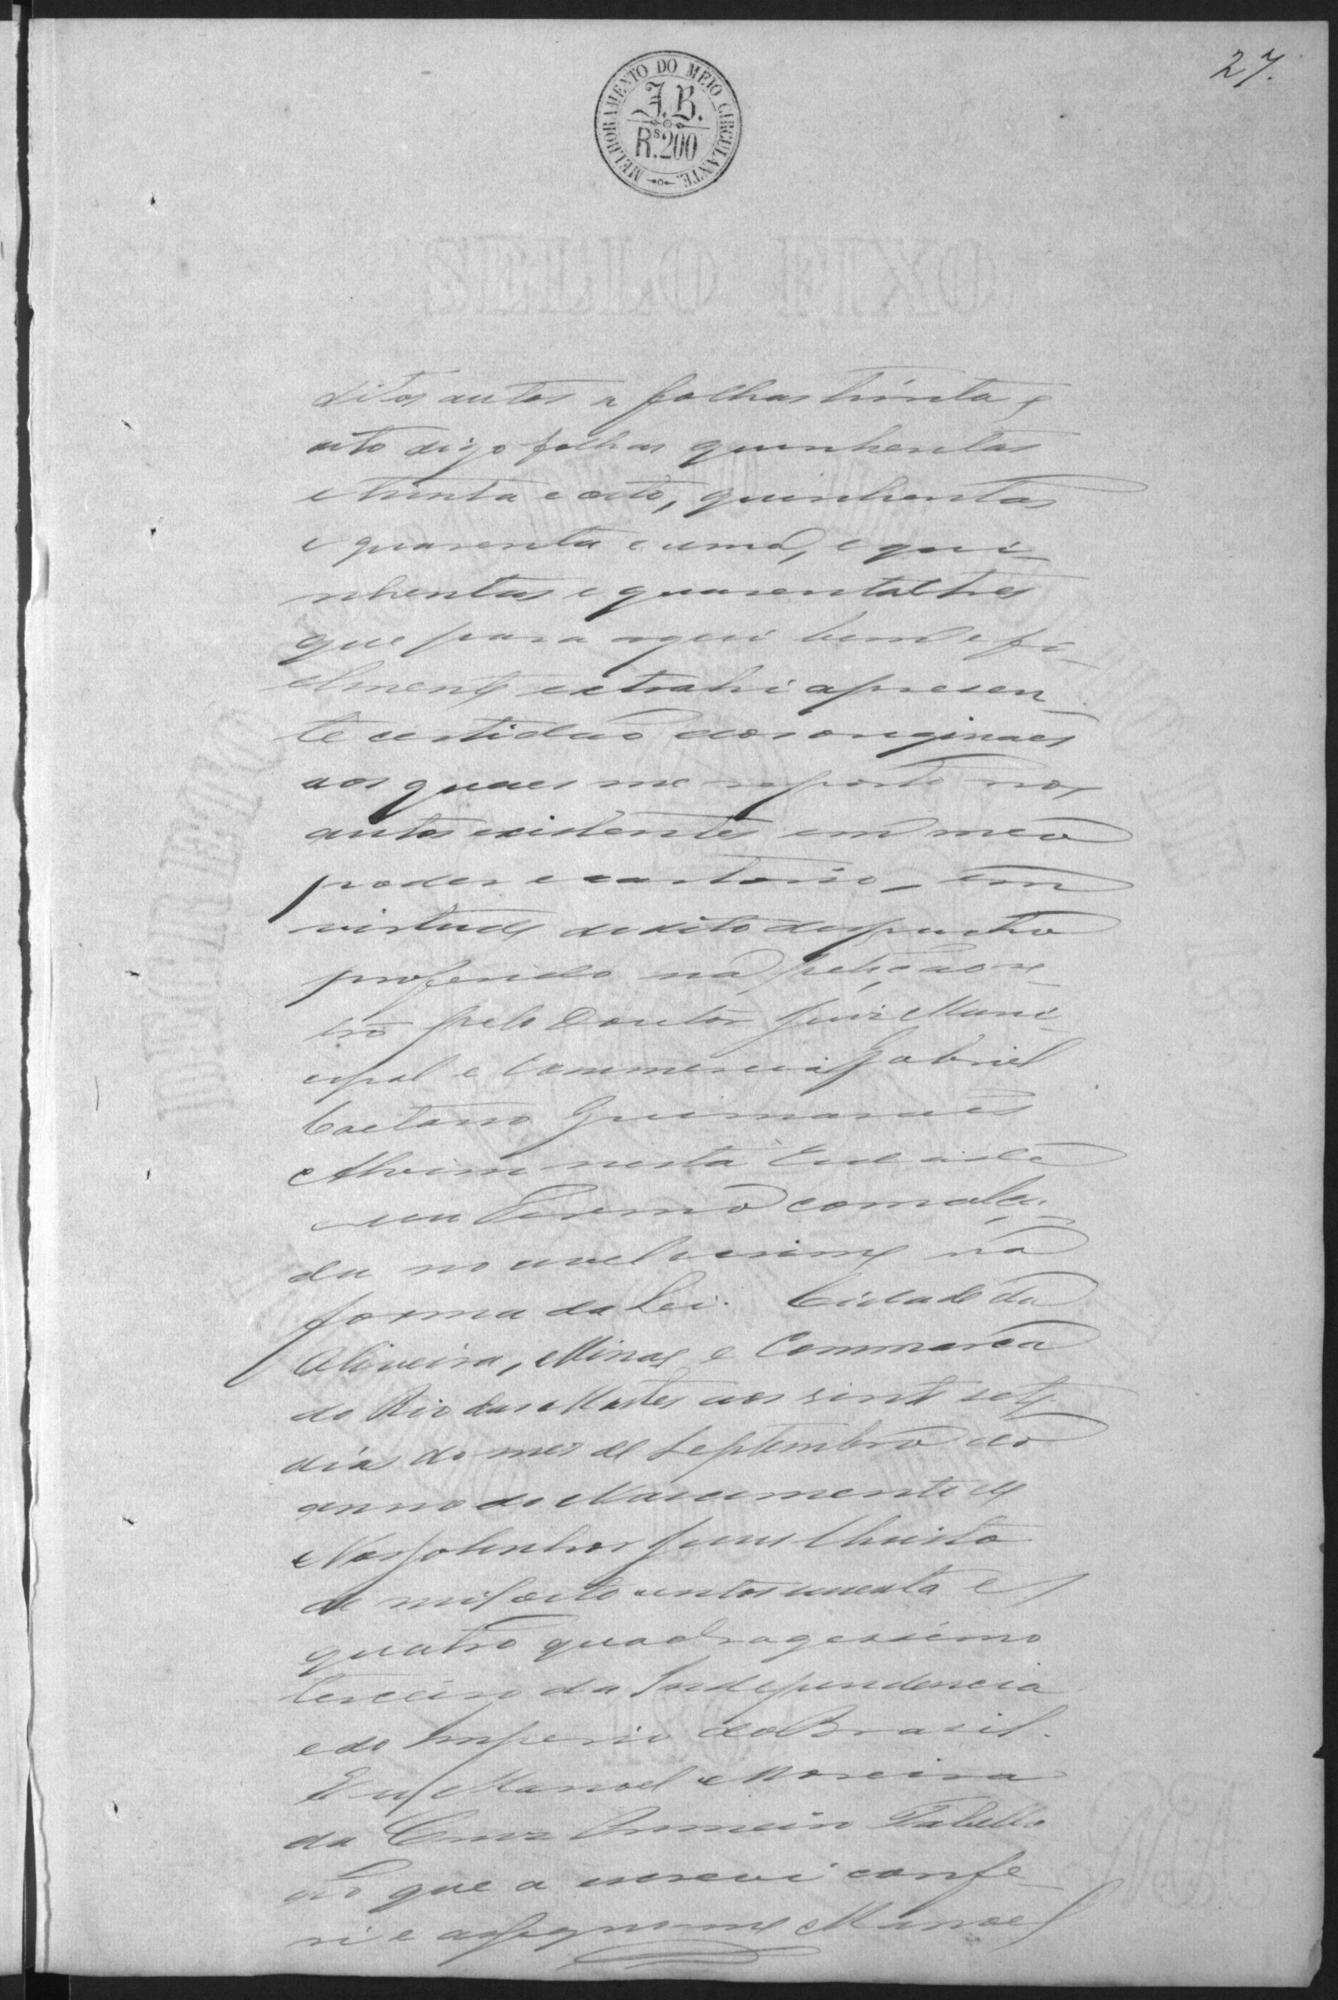 27.
MELHORAMENTO DO MEIO CIRCULANTE.
J.B.
Rs.200
SELLO FIXO
ditos autos a folhas trinta e
oito digo folhas quinhentas
e trinta e oito, quinhentas
e quarenta e uma, e qui-
nhentas e quarenta e tres
que para aqui bem e fi-
elmente extrahi a presen-
te certidão dos originaes
aos quaes me reporto nos
autos existentes em meo
poder e cartorio, em
virtude do dito despacho
proferido na petição re-
tro pelo Doutor Juiz Muni-
cipal e Commercial Gabriel
Caetano Guimarães
Alvim nesta Cidade
seu Termo com alça-
da no civel e crime na
forma da Lei. Cidade da
Oliveira, Minas e Commarca
do Rio das Mortes aos vinte sete
dias do mez de Septembro do
anno do Nascimento de
Nosso Senhor Jesus Christo
de mil oito centos secenta e
quatro quadragessimo
terceiro da Independencia
e do Imperio do Brasil.
Eu Manoel Moreira
da Cruz Primeiro Tabelli-
ão que a escrevi confe-
ri e assignome Manoel